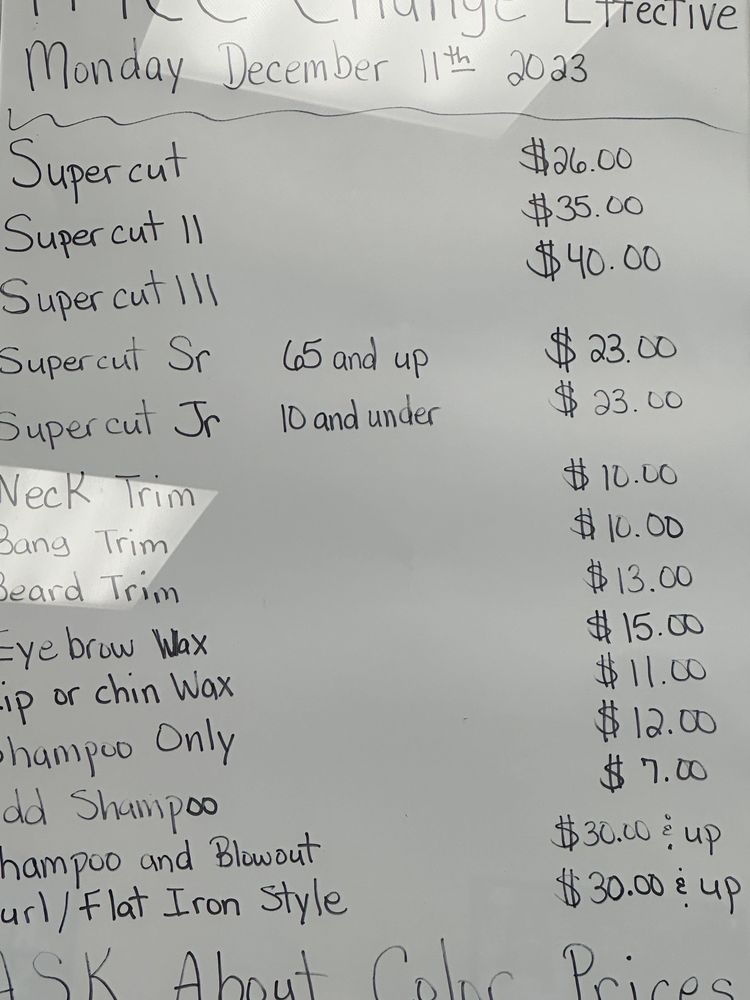 PRICE Change Effective
Monday December 11th 2023
Supercut $26.00
Supercut II $35.00
Supercut III $40.00
Supercut Sr 65 and up $23.00
Supercut Jr 10 and under $23.00
Neck Trim $10.00
Bang Trim $10.00
Beard Trim $13.00
Eyebrow Wax $15.00
Lip or chin Wax $11.00
Shampoo Only $12.00
Add Shampoo $7.00
Shampoo and Blowout $30.00 & up
Curl/Flat Iron Style $30.00 & up
ASK About Color Prices